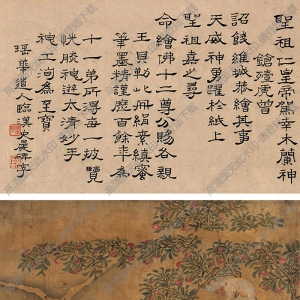 聖祖仁皇帝駕幸木蘭神
鎗殪虎曾
詔餞維城恭繪其事
天威神勇躍於紙上
聖祖嘉之尋
命繪佛十二尊分賜各親
王貝勒此冊絹素縝密
筆墨精謹歷百餘年為
十一弟所得每一披覽
恍睒神遊太清妙手
神工洵為至寶
瑤華道人臨漢史晨碑字